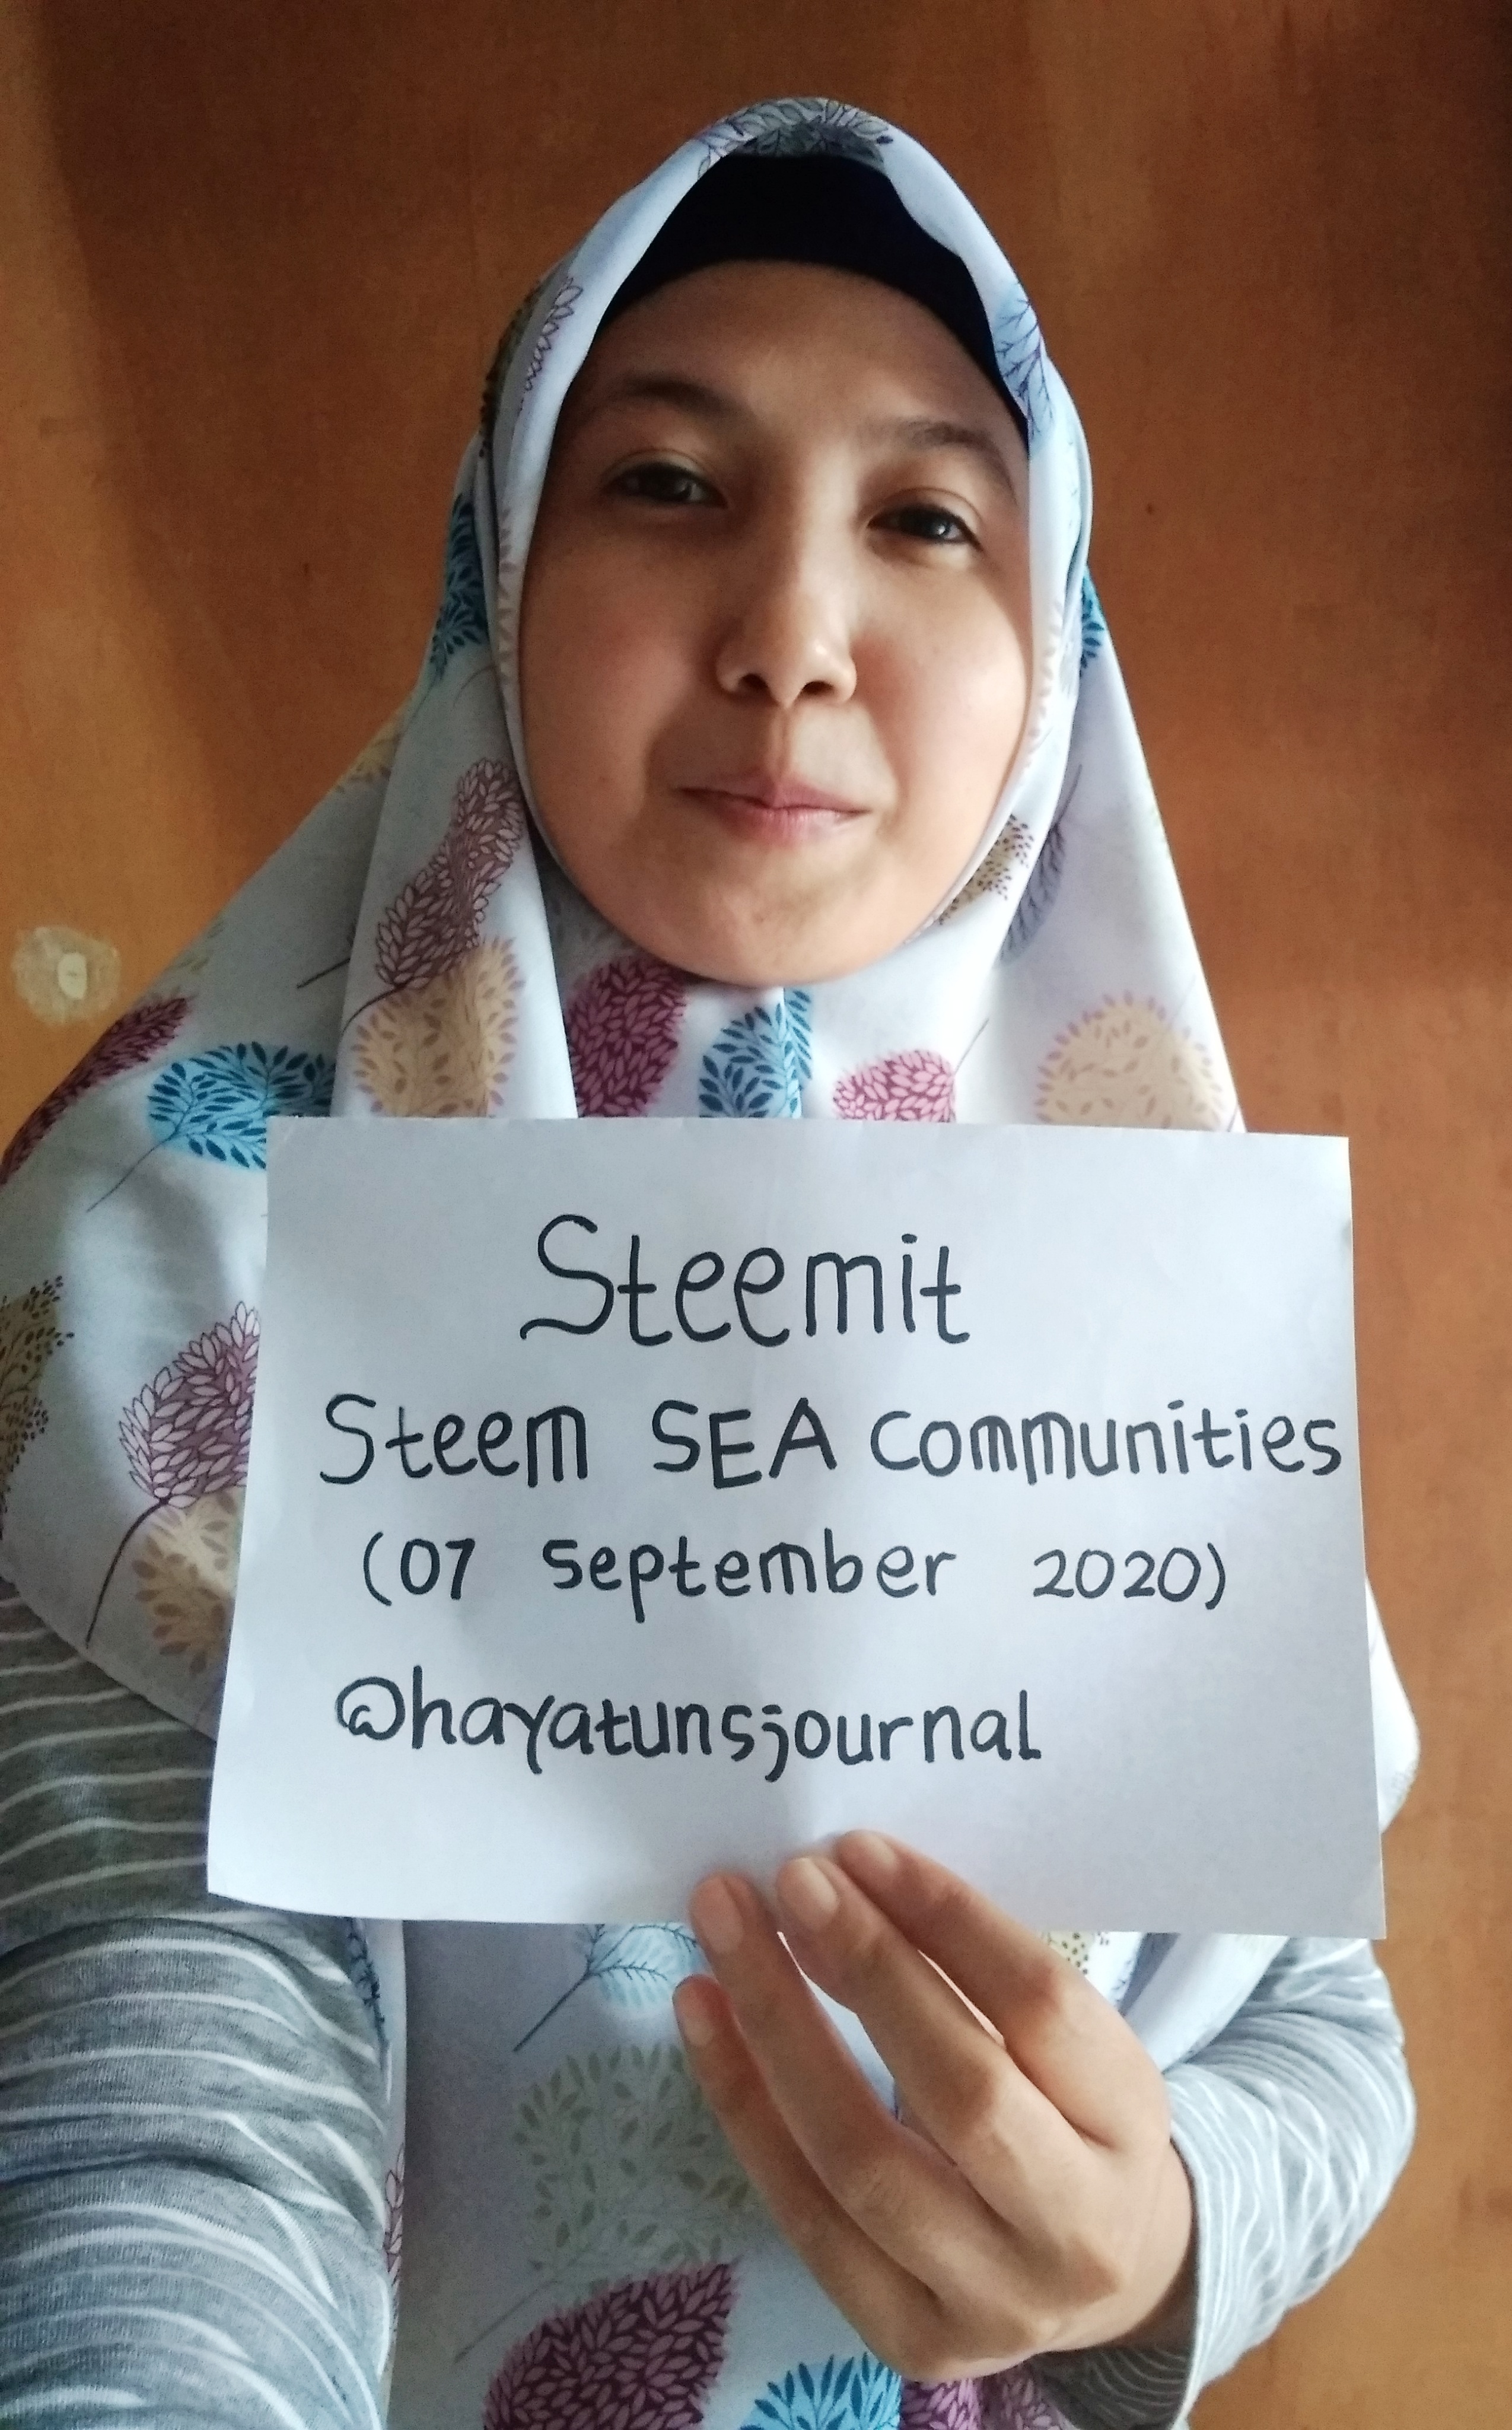 Steemit
Steem SEA Communities
(07 September 2020)
@hayatunsjournal